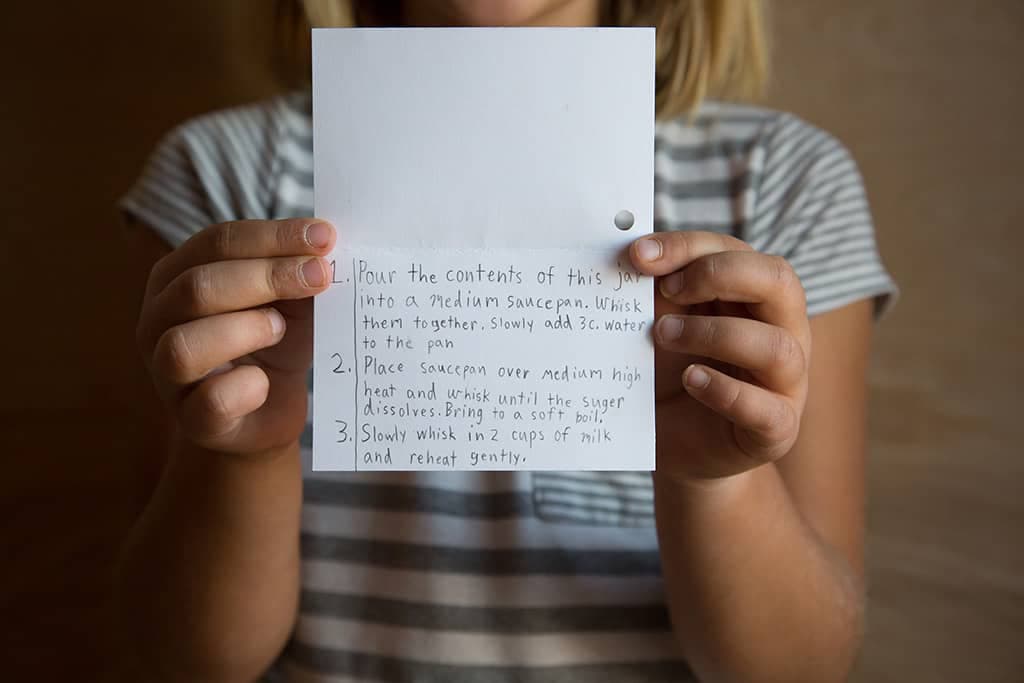 1. Pour the contents of this jar
into a medium saucepan. Whisk
them together. Slowly add 3c. water
to the pan
2. Place saucepan over medium high
heat and whisk until the suger
dissolves. Bring to a soft boil.
3. Slowly whisk in 2 cups of milk
and reheat gently.